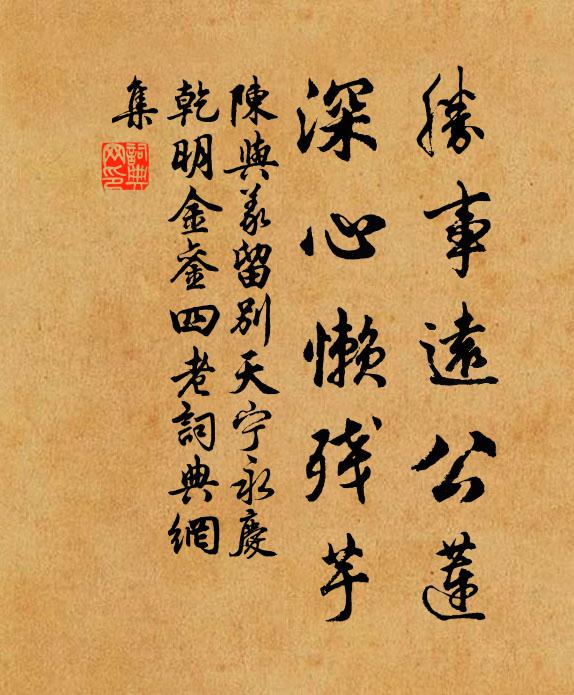 勝事遠公蓮
深心懶残芋
陳與義留別天宁永慶
乾明金銮四老詞典網
集
詞典網印